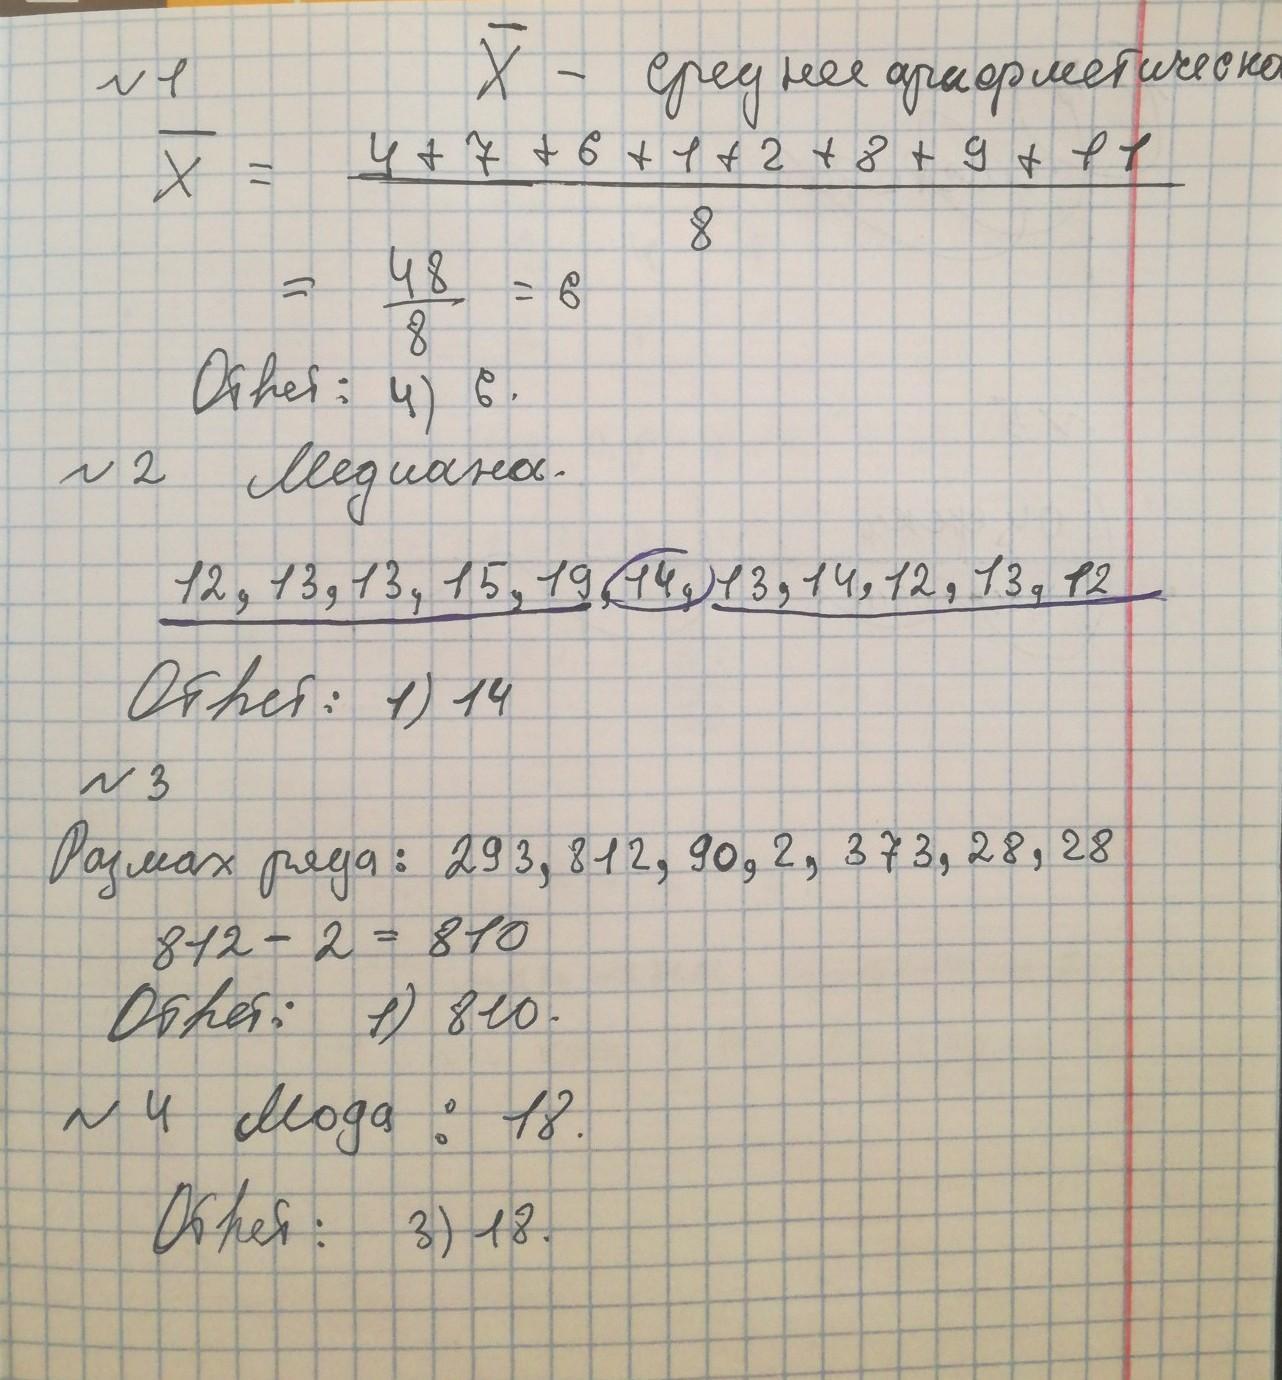 №1 X̅ - среднее арифметическо
X̅ = 4 + 7 + 6 + 1 + 2 + 8 + 9 + 11
8
= 48/8 = 6
Ответ: 4) 6.
№2 Медиана.
12, 13, 13, 15, 19, 14, 13, 14, 12, 13, 12
Ответ: 1) 14
№3
Размах ряда: 293, 812, 90, 2, 373, 28, 28
812 - 2 = 810
Ответ: 1) 810.
№4 Мода: 18.
Ответ: 3) 18.